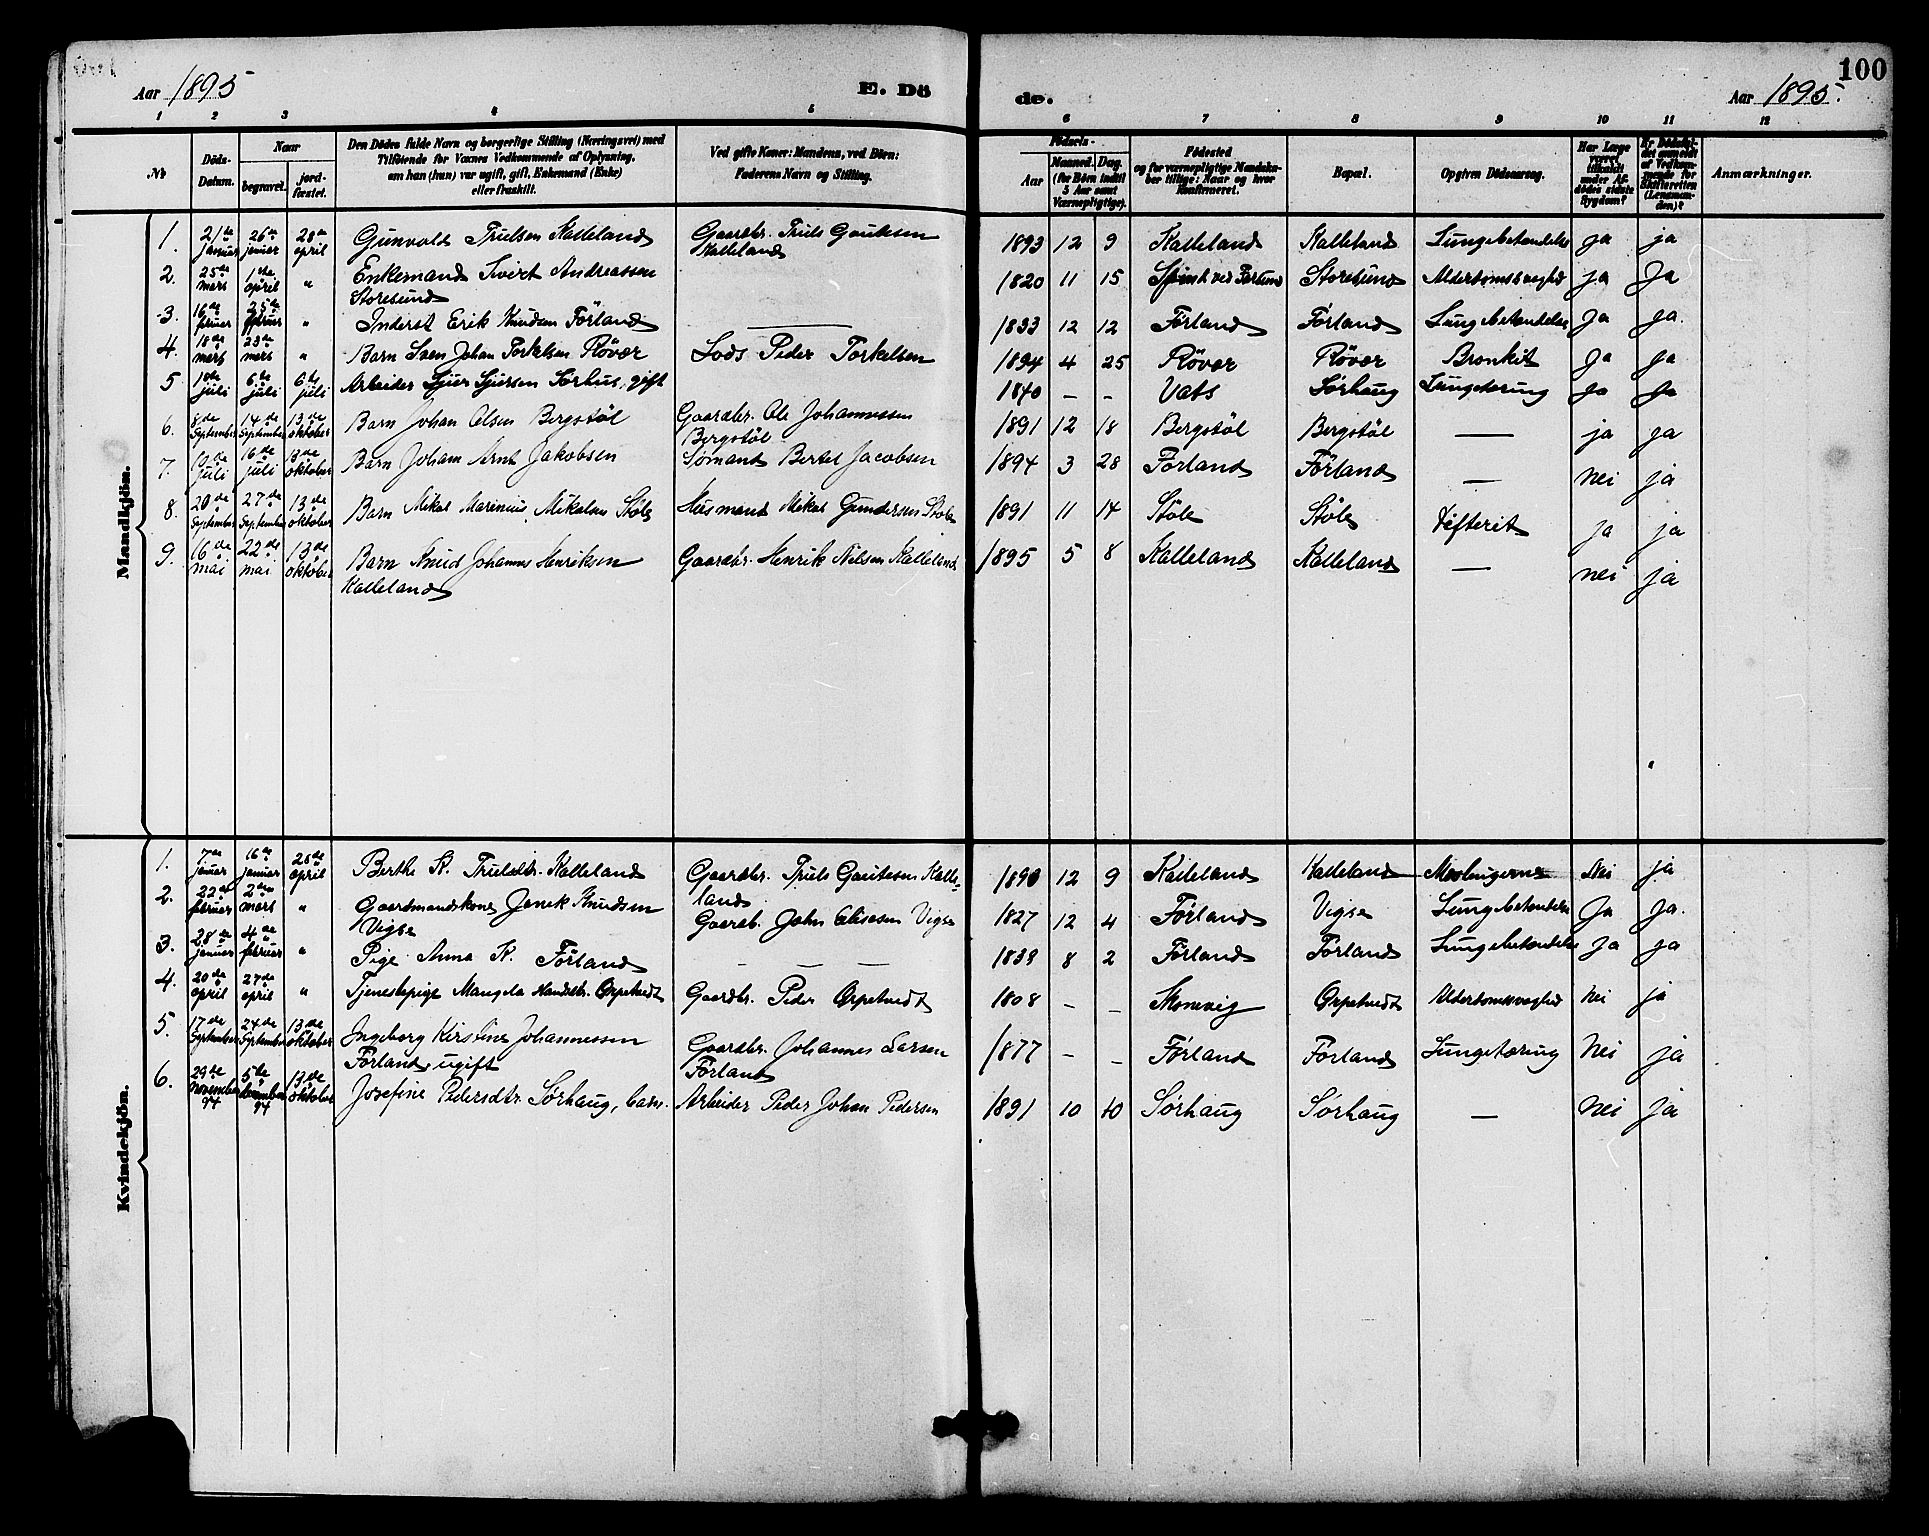 100
Aar 1895
E. Dö
de.
Aar 1895.
1 2 3 4 5 6 7 8 9 10 11 12
No
Döds-Datum.
Naar
begravet.
jord-fæstet.
Den Dödes fulde Navn og borgerlige Stilling (Næringsvei) med
Tilföiende for Voxnes Vedkommende af Oplysning,
om han (hun) var ugift, gift, Enkemand (Enke)
eller fraskilt.
Ved gifte Koner: Mandens, ved Börn:
Faderens Navn og Stilling.
Fødsels-
Aar
Maaned. Dag.
(for Børn indtil
5 Aar samt
Værnepligtige).
Födested
og for værnepligtige Mandska-
ber tillige: Naar og hvor
konfirmeret.
Bopæl.
Opgiven Dödsaarsag.
Har Læge
været
tilkaldt
under Af-
dödes sidste
Sygdom?
Er Dödsfal-
det anmeldt
af Vedkom-
mende for
Skifteretten
(Lensman-
den)?
Anmærkninger.
Mandkjön.
1. 21de januar 26de januar 28de april Gunvald Trulsen Kalleland Gaardbr. Truls Gautesen Kalleland 1893 12 9 Kalleland Kalleland Lungebetændelse ja ja
2. 25de mars 1ste april " Enkemand Sivert Andreassen Storesund 1820 11 15 Storesund Alderdomssvaghed ja Ja
3. 16de februar 25de februar " Inderst Erik Knudsen Förland — 1833 12 12 Förland Förland Lungebetændelse Ja Ja.
4. 18de mars 23de mars " Barn Sven Johan Torkelsen Rövær Lods Peder Torkelsen 1894 4 25 Rövær Rövær Bronkit Ja Ja
5 1ste juli 6te juli 6te juli Arbeider Sjur Sjursen Sørhus, gift 1840 – – Vats Sørhaug Lungetæring Ja Ja
6. 8de September 14de September 13de oktober Barn Johan Olsen Bergstöl Gaardbr. Ole Johannessen Bergstöl 1891 12 18 Bergstöl Bergstöl — ja ja
7. juli 16de juli 13de oktober Barn Johan Arnt Jakobsen Sømand Bertel Jacobsen 1894 3 28 Förland Förland — nei ja
8. 20de September 27de September 13de oktober Barn Mikal Marenius Mikalsen Støle Husmand Mikal Gundersen Støle 1891 11 14 Støle Støle difterit ja ja
9. 16de mai 22de mai 13de oktober Barn Knud Johannes Henriksen Kalleland Gaardbr. Henrik Nilsen Kalleland 1895 5 8 Kalleland Kalleland — nei ja
Kvindekjön.
1. 7de januar 16de januar 28de april Berthe K. Trulsdtr. Kalleland Gaardbr. Truls Gautesen Kalleland 1890 12 9 Kalleland Kalleland Meslingerne Nei ja
2. 22de februar 2den mars " Gaardmandskone Knudsen Vigse Gaardb. John Elisesen Vigse 1827 12 4 Førland Vigse Lungebetændelse Ja Ja.
3. 28de januar 4de februar " Pige Anna K. Førland — — — 1839 8 2 Førland Førland Lungebetændelse Ja ja
4. 20de april 27de april " Tjenestepige Mangela Ørpetvedt Gaardbr. Peder Ørpetvedt 1808 – – Skonevig Ørpetvedt Alderdomssvaghed Nei ja
5. 17de September 24de September 13de oktober Ingeborg Kirstine Johannessen Førland, ugift Gaardbr. Johannes Larsen Førland 1877 – – Førland Førland Lungetæring Nei ja
6. 29de november 94 5te december 94 13de oktober Josefine Pedersdtr. Sørhaug, barn. Arbeider Peder Johan Pedersen 1891 10 10 Sørhaug Sørhaug — nei ja